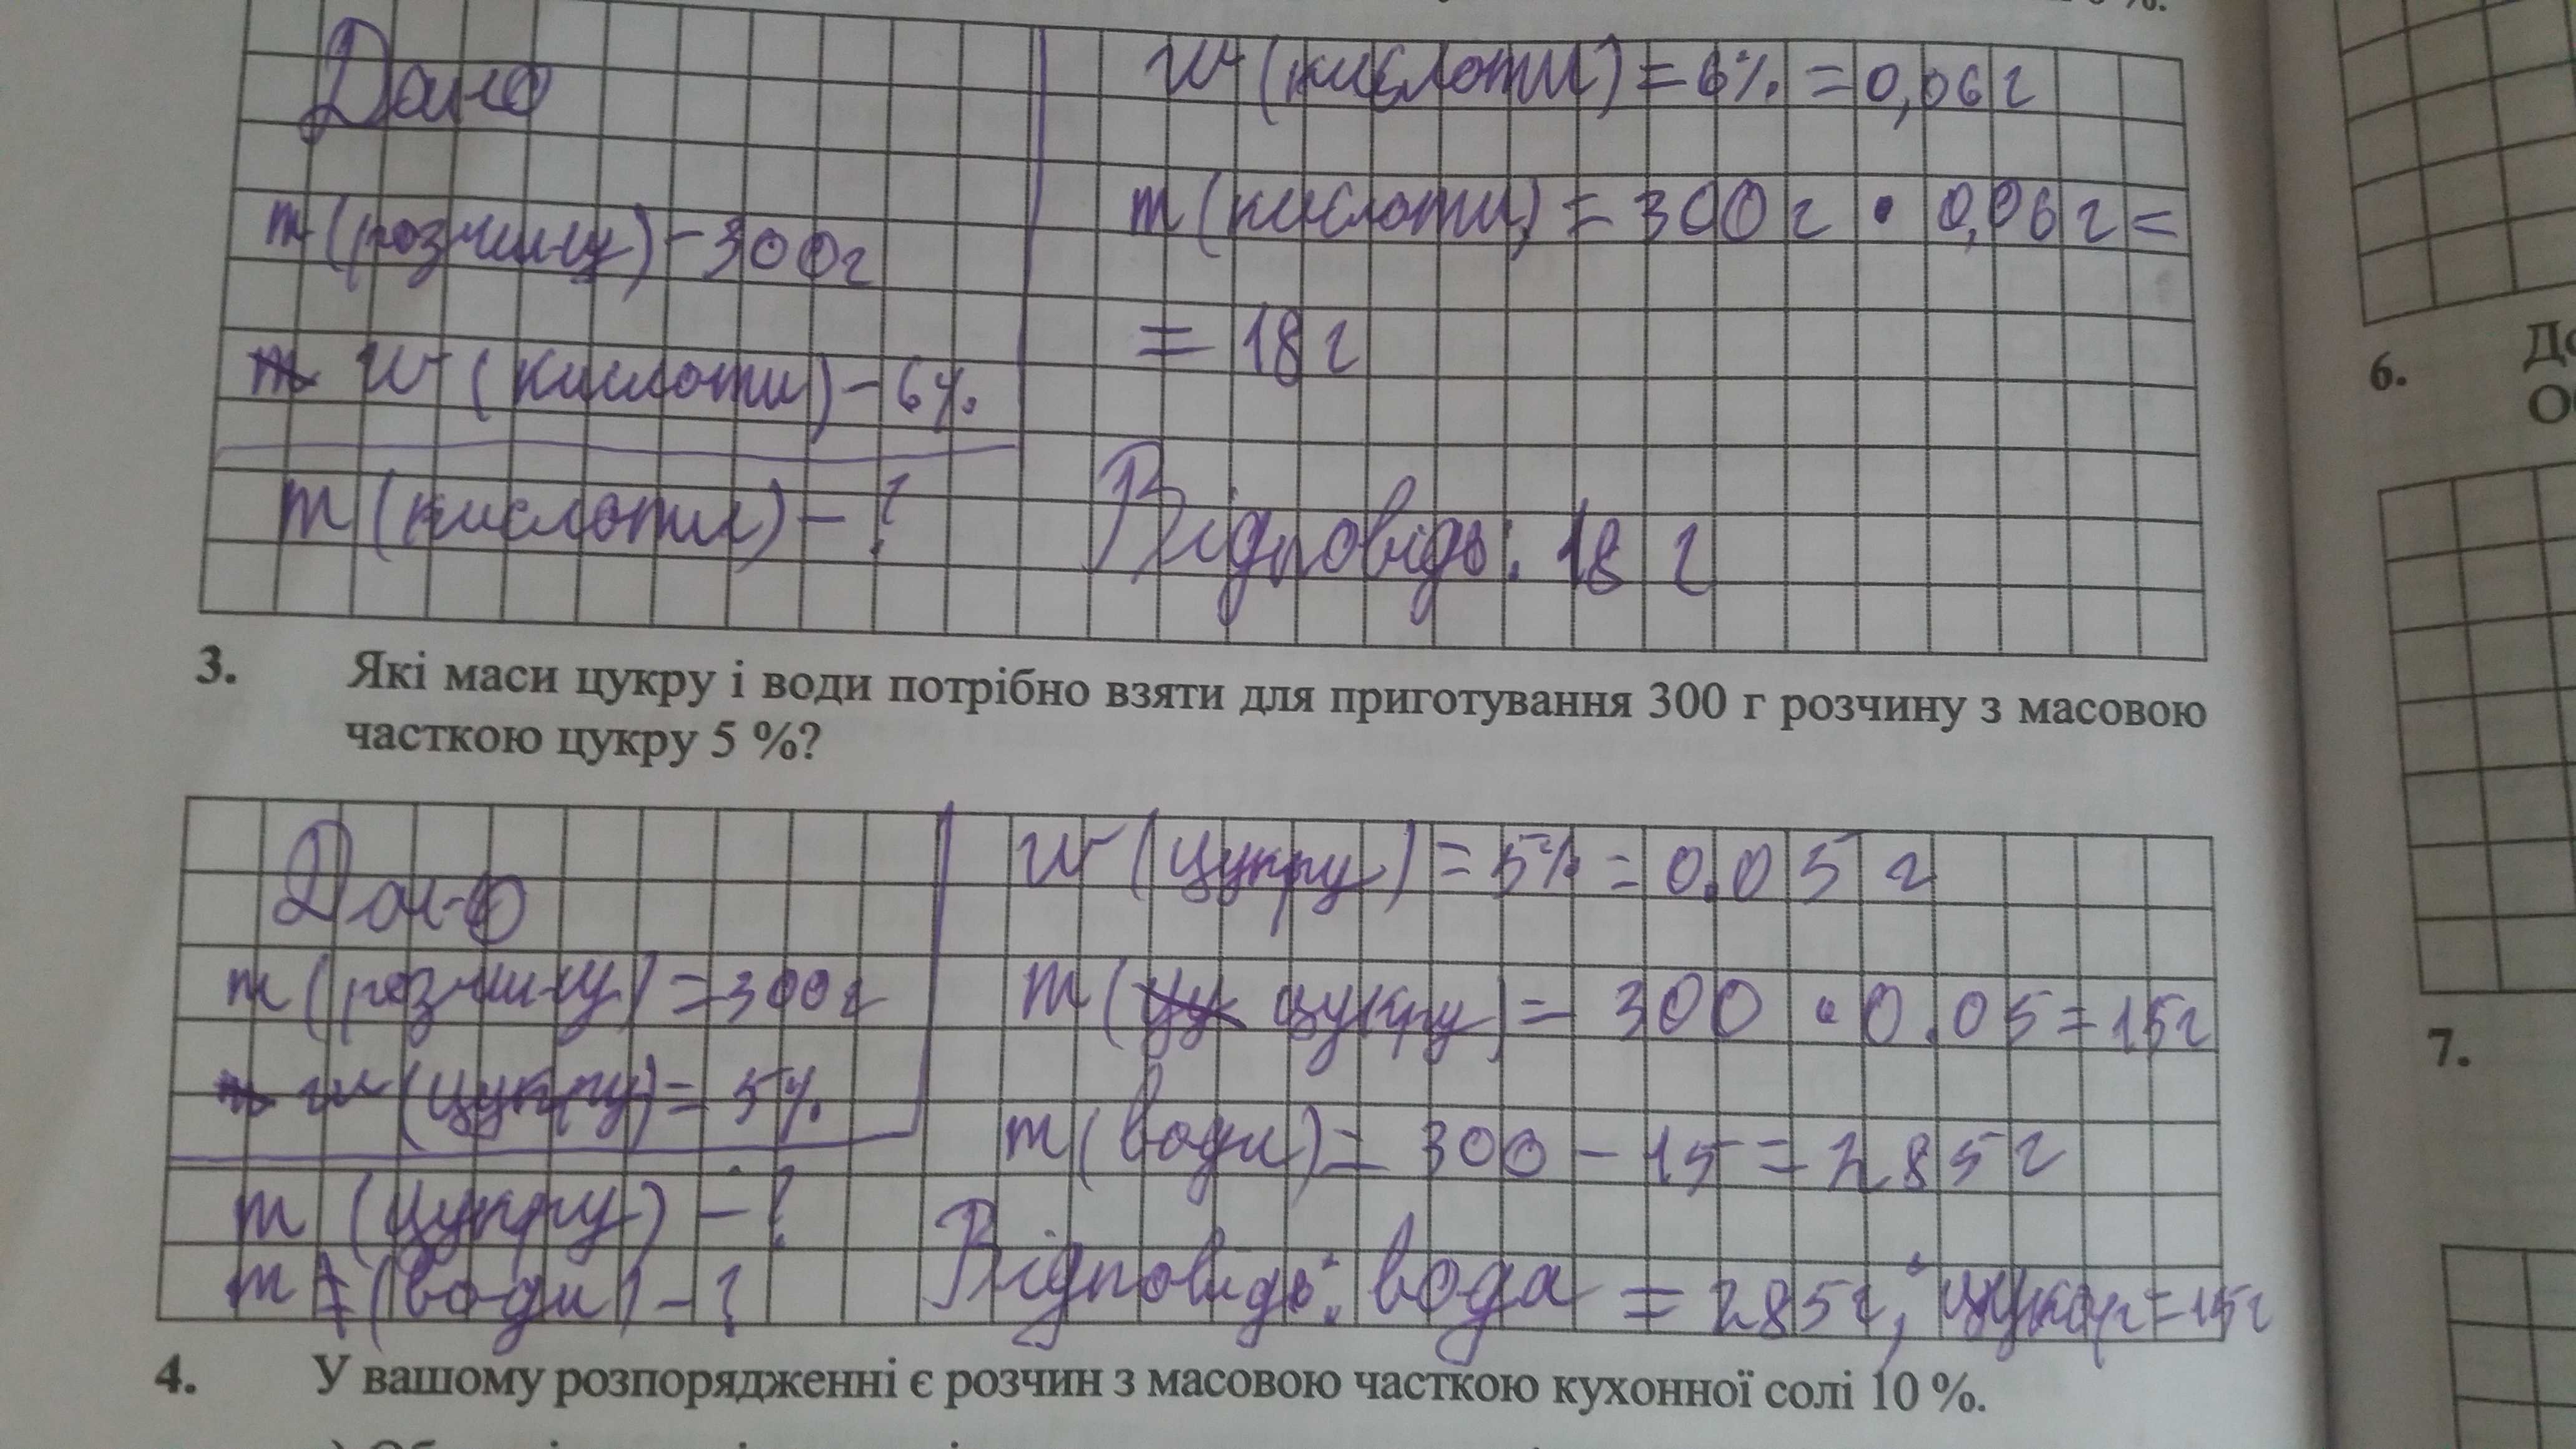 Дано
w (кислоти) = 6% = 0,06 г
m (розчину) - 300г
m (кислоти) = 300 г • 0,06 г =
= 18 г
w (кислоти) - 6%
m (кислоти) - ?
Відповідь: 18 г
3. Які маси цукру і води потрібно взяти для приготування 300 г розчину з масовою
часткою цукру 5 %?
Дано
w (цукру) = 5% = 0.05 г
m (розчину) = 300г
m (цукру) = 300 • 0.05 = 15г
w (цукру) = 5%
m (води) = 300 - 15 = 285 г
m (цукру) - ?
m (води) - ?
Відповідь: вода = 285г, цукор = 15г
4. У вашому розпорядженні є розчин з масовою часткою кухонної солі 10 %.
6.
7.